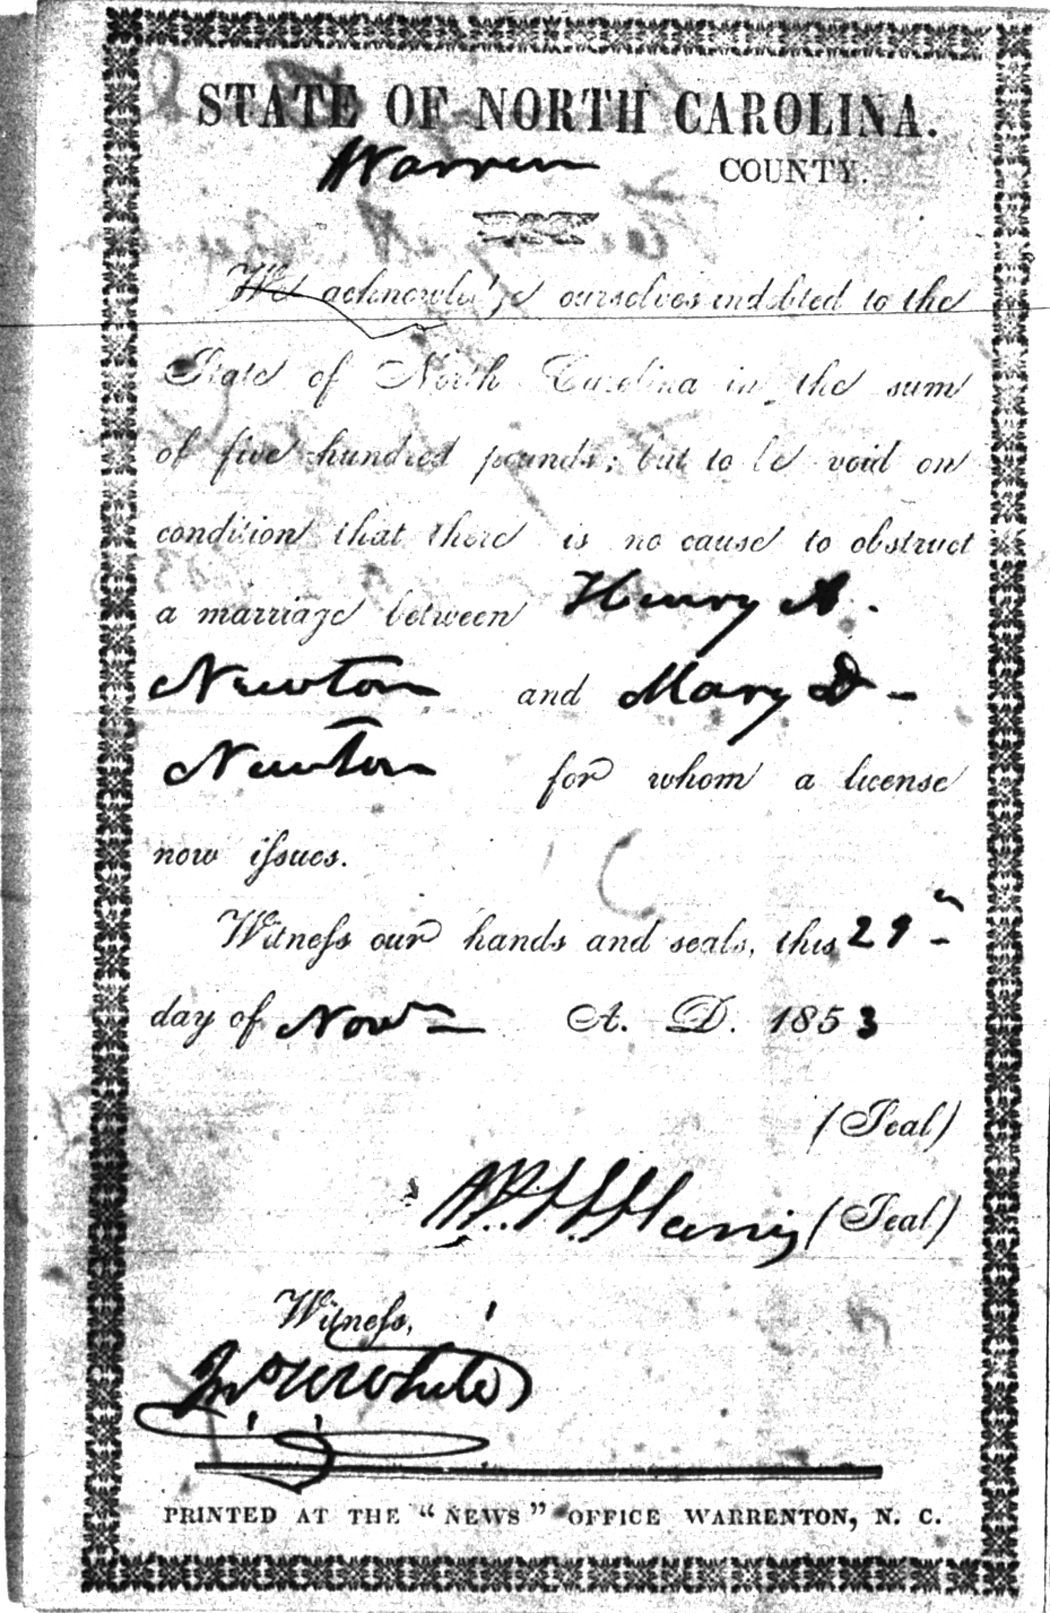 STATE OF NORTH CAROLINA.
Warren COUNTY.
We acknowledge ourselves indebted to the
State of North Carolina in the sum
of five hundred pounds; but to be void on
condition that there is no cause to obstruct
a marriage between Henry A.
Newton and Mary D-
Newton for whom a license
now issues.
Witness our hands and seals, this 29th
day of Novr A. D. 1853
(Seal)
Harris (Seal)
Witness,
Jno W White
PRINTED AT THE "NEWS" OFFICE WARRENTON, N. C.